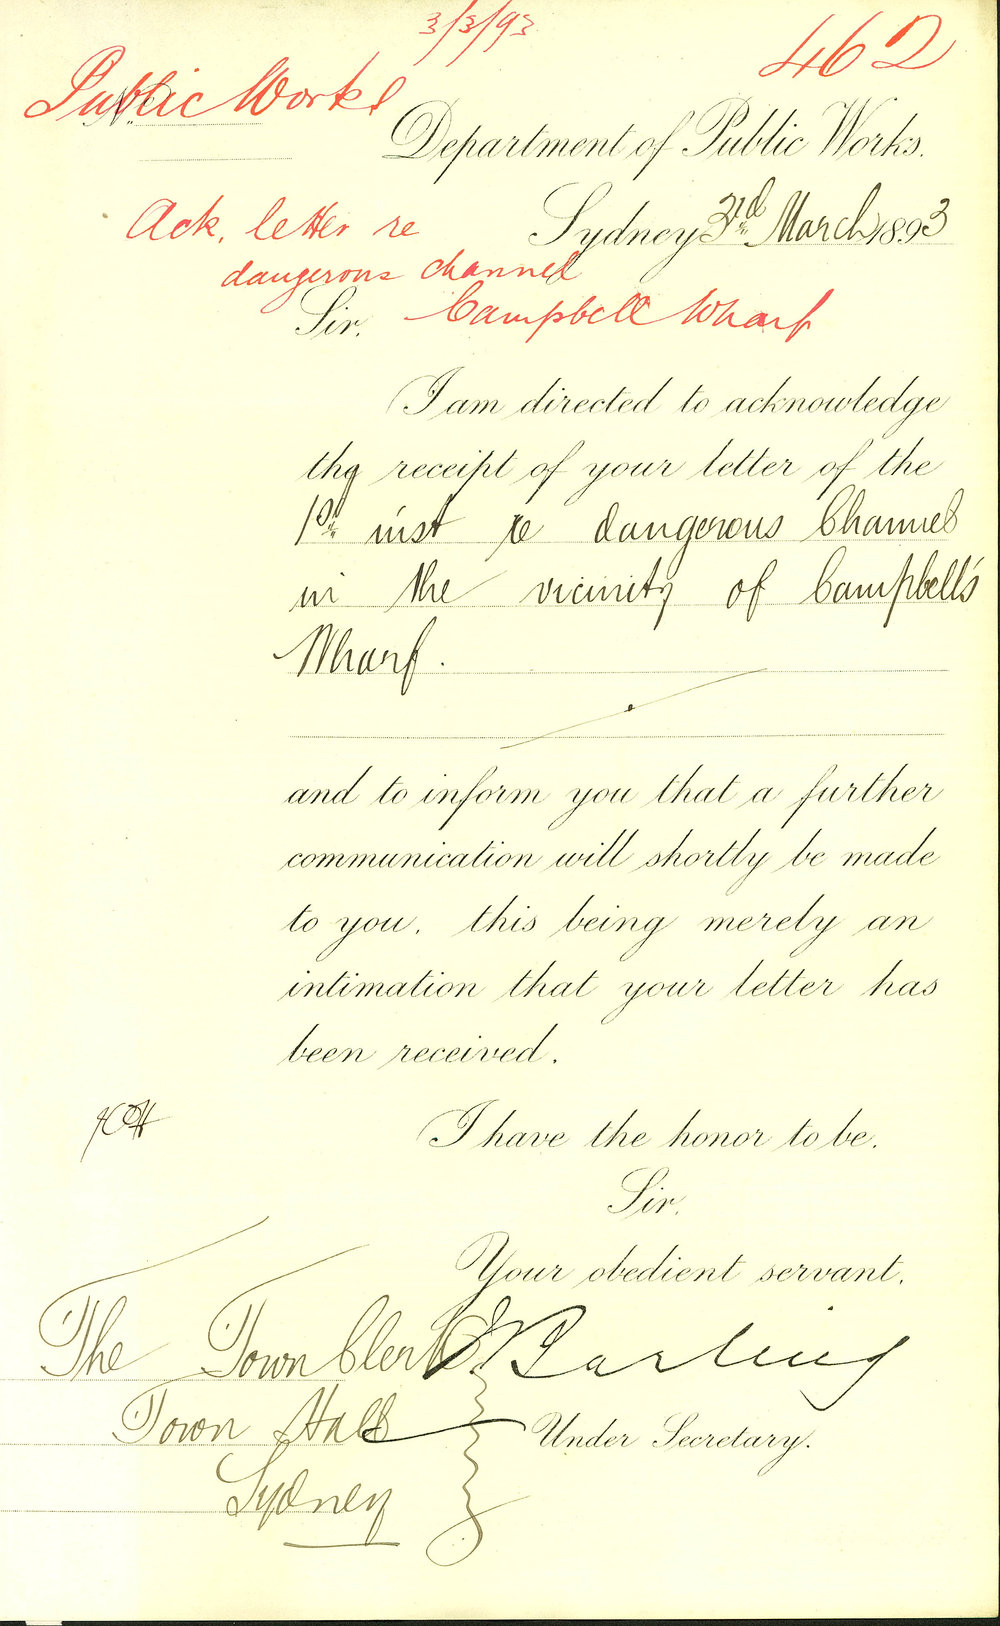 3/3/93
462
Public Works
No.
Department of Public Works.
Sydney 3rd March 1893
Ack. letter re
dangerous channel
Campbell Wharf
Sir,
I am directed to acknowledge
the receipt of your letter of the
1st inst re dangerous Channel
in the vicinity of Campbell's
Wharf.
and to inform you that a further
communication will shortly be made
to you, this being merely an
intimation that your letter has
been received.
I have the honor to be,
Sir,
Your obedient servant,
J Barling
Under Secretary.
The Town Clerk
Town Hall
Sydney